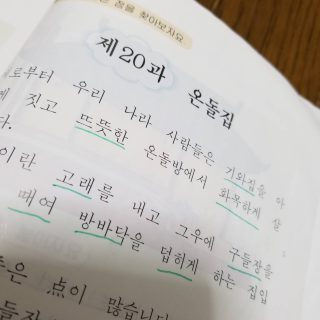 점을 찾아보자요
제20과 온돌집
로부터 우리 나라 사람들은 기와집을 아
짓고 뜨뜻한 온돌방에서 화목하게 살
다.
이란 고래를 내고 그우에 구들장을
때여 방바닥을 덥히게 하는 집입
은 점이 많습니다